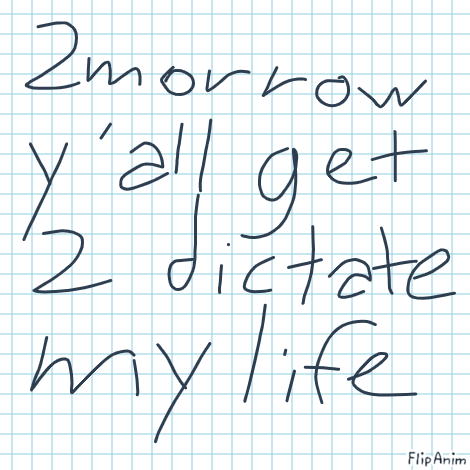 2morrow
y'all get
2 dictate
my life
FlipAnim